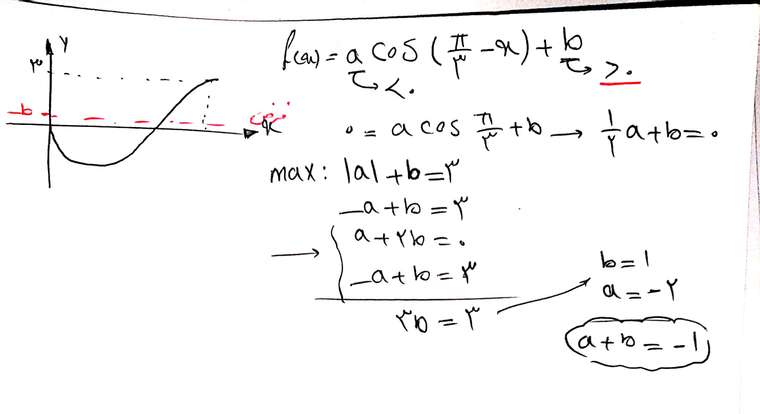 y
۳
b
x
f(x) = a cos (π/۳ - x) + b
< ۰
> ۰
۰ = a cos π/۳ + b → ۱/۲ a + b = ۰
max: |a| + b = ۳
-a + b = ۳
→ a + ۲b = ۰
-a + b = ۳
۳b = ۳
b = ۱
a = -۲
a + b = -۱